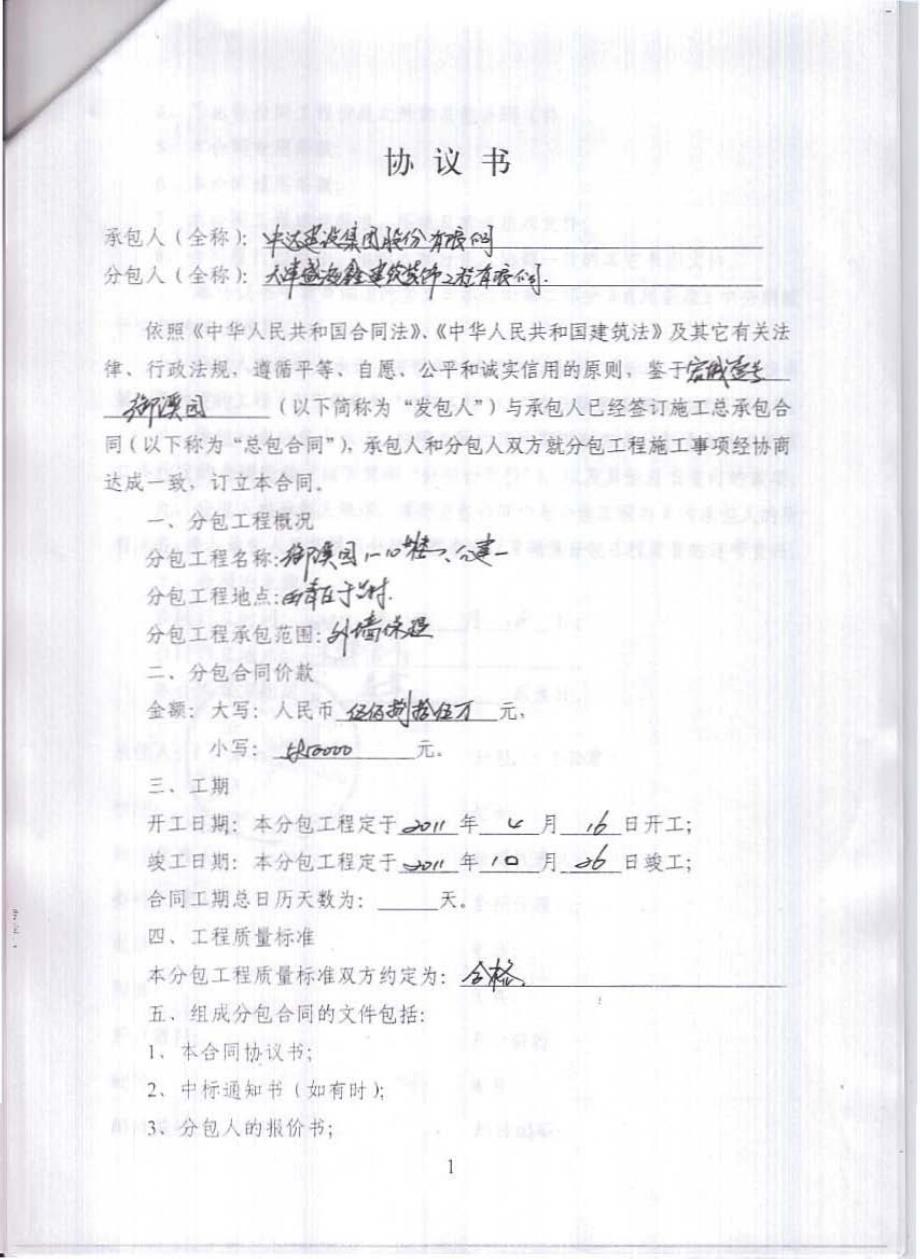 协议书
承包人(全称): 中达建设集团股份有限公司
分包人(全称): 天津盛海鑫建筑装饰工程有限公司.
依照《中华人民共和国合同法》、《中华人民共和国建筑法》及其它有关法
律、行政法规,遵循平等、自愿、公平和诚实信用的原则,鉴于宏城壹号
御溪园(以下简称为“发包人”)与承包人已经签订施工总承包合
同(以下称为“总包合同”),承包人和分包人双方就分包工程施工事项经协商
达成一致,订立本合同.
一、分包工程概况
分包工程名称:御溪园1-10楼、公建
分包工程地点:西青区于兰村.
分包工程承包范围:外墙保温
二、分包合同价款
金额:大写:人民币 伍佰捌拾伍万 元,
小写:5850000 元。
三、工期
开工日期:本分包工程定于 2011 年 4 月 16 日开工;
竣工日期:本分包工程定于 2011 年 10 月 26 日竣工;
合同工期总日历天数为: 天。
四、工程质量标准
本分包工程质量标准双方约定为:合格
五、组成分包合同的文件包括:
1、本合同协议书;
2、中标通知书(如有时);
3、分包人的报价书;
1